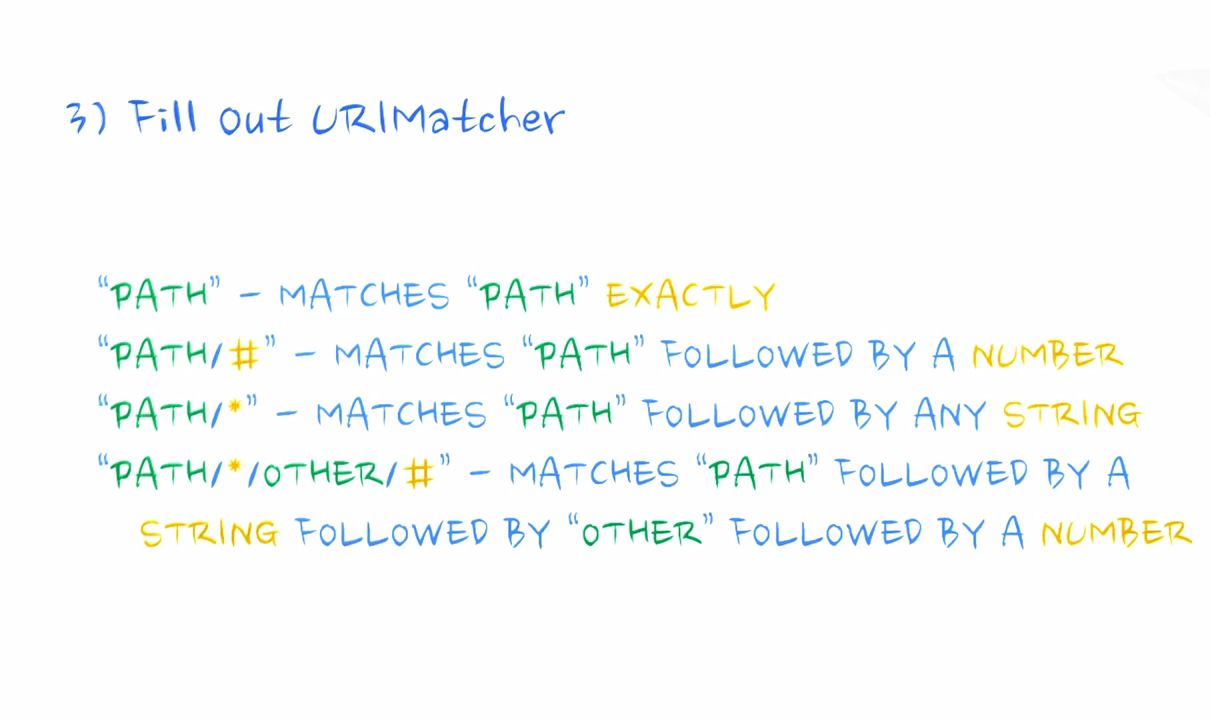 3) Fill out URIMatcher
“PATH” – MATCHES “PATH” EXACTLY
“PATH/#” – MATCHES “PATH” FOLLOWED BY A NUMBER
“PATH/*” – MATCHES “PATH” FOLLOWED BY ANY STRING
“PATH/*/OTHER/#” – MATCHES “PATH” FOLLOWED BY A
STRING FOLLOWED BY “OTHER” FOLLOWED BY A NUMBER